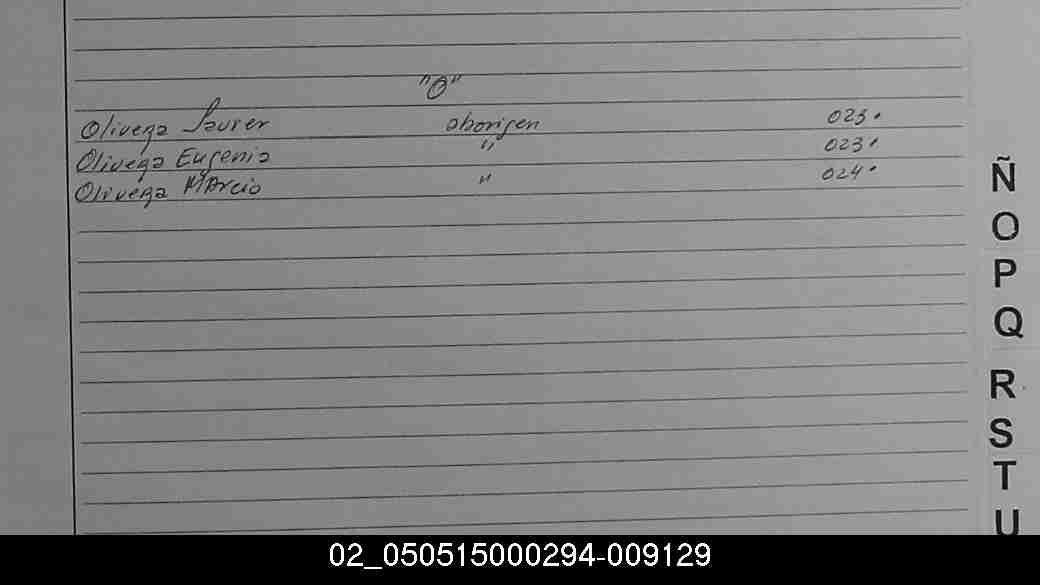 "O"
Olivega Javier aborigen 023.
Olivega Eugenia " 023.
Olivega Marcio " 024.
Ñ
O
P
Q
R
S
T
U
02_050515000294-009129